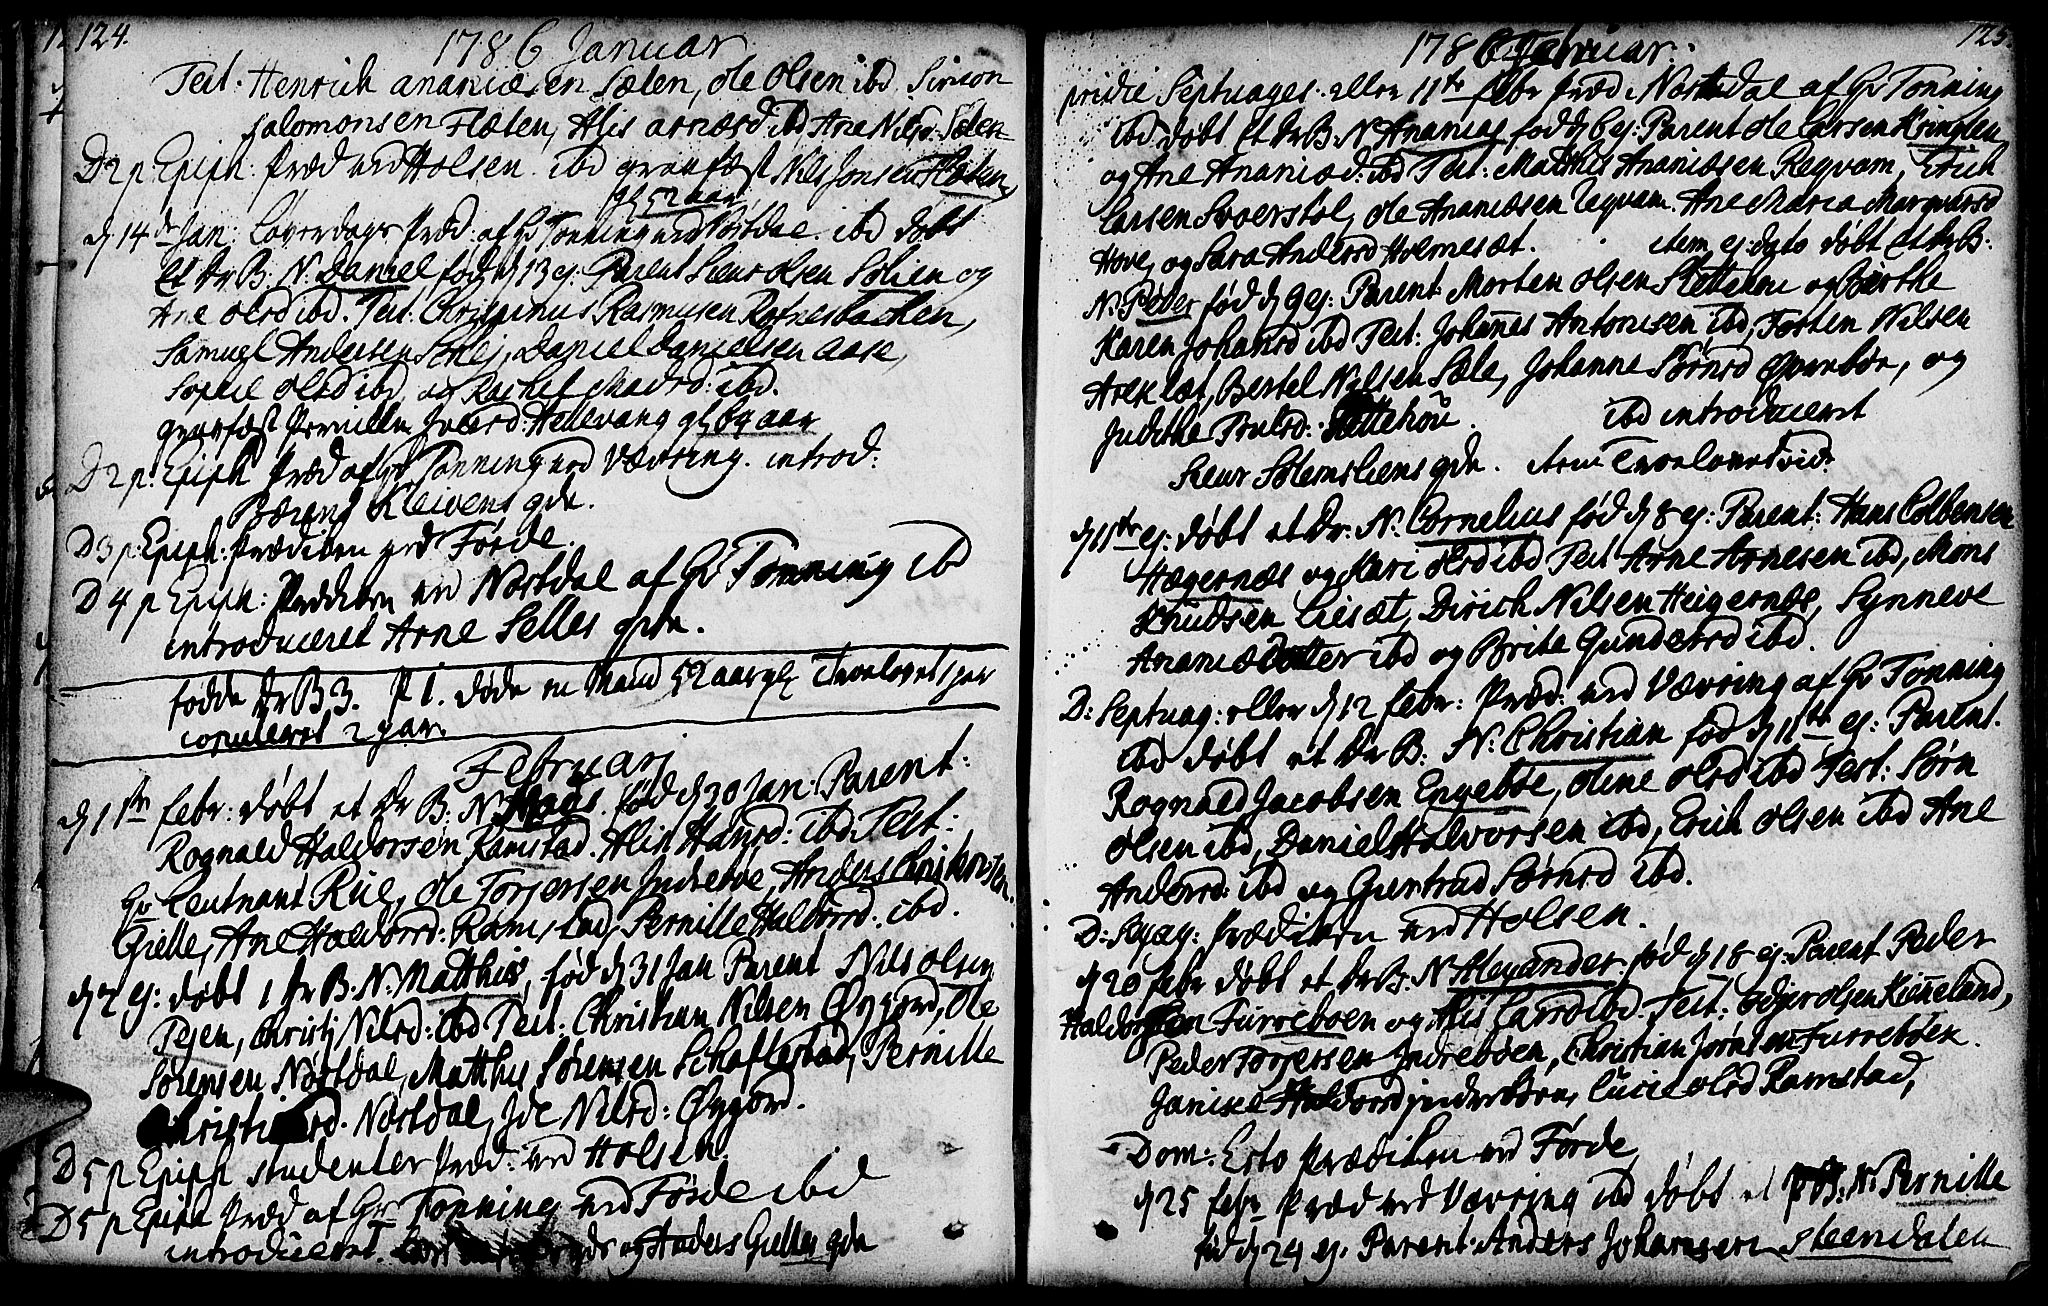 124.
1786 Januar
Test. Henrich Ananiæsen Sælen, Ole Olsen ibd. Simon
Salomonsen Flæten, Alis ibd Ane Nilsd. Sælen
D 2 p. Epiph. Præd. ved Holsen. ibd gravfæst Nils Jonsen Flæten
gl. 52 aar
d 14de Jan: Løverdags Præd. af Hr Tonning ved Nøstdal. ibd døbt
Et Dr. B. N. Daniel, fød d 13 ej. Parent Siur Olsen Solien og
Ane Olsd ibd. Test. Chrispinus Rasmusen Rotnesbacken,
Samuel Andersen Daniel Danielsen Aase,
Sophie Olsd ibd og Rachel Madsd: ibd.
gravfæst Pernille Hellevang gl. 69 aar
D 2 p. Epiph Præd af Hr. Tonning ved Vævring. introd:
Klevens qde.
D 3 p. Epiph: Prædiken ved Førde.
D 4 p Epiph: Prædiken ved Nøstdal af Hr Tonning ibd
introduceret Arne Selles qde.
fødde Dr B 3. P 1. døde en Mand 52 aar gl. Trolovet 1 par
copuleret 2 par.
Februari
d 1ste febr: døbt et Dr B: N. Hans fød d 30 Jan: Parent:
Rognald Haldorsen Ramstad. Alis Hansd: ibd. Test:
Hr Leutnant Rue, Ole Torjersen Indrebøe, Anders Christensen
Gielle, Ane Haldorsd: Ramstad, Pernille Haldorsd: ibd.
d 2 ej: døbt 1 Dr B. N. Matthis, fød d 31 Jan Parent Nils Olsen
Tejen, Christi Nilsd: ibd Test: Christian Nilsen Øygord, Ole
Sørensen Nøstdal, Matthis Sørensen Schaflestad, Pernille
Nøstdal, Ide Nilsd: Øygord.
D 5 p Epiph studenter Præd: ved Holsen.
D 5 p Epiph Præd af Hr Tonning ved Førde ibd
introduceret. og Anders Gielles qde
125.
1786 Februar.
pridie Septuages. eller 11te febr præd. i Nøstdal af Hr Tonning
ibd døbt Et Dr B. N. Ananias fød d 6 ej: Parent Ole Larsen Kringlen
og Ane Ananiæd. ibd Test: Matthis Ananiæsen Reqvam, Erich
Larsen Ole Ananiæsen Reqvam. Ane Maria Marqvarsd
Hove, og Sara Andersd Holmesæt. item ej: dato døbt et Dr B:
N. Peder fød d 9 ej: Parent Morten Olsen Slettehou og Berthe
Karen Johansd ibd Test: Johannes Antonisen ibd, Torsten Nilsen
Bertel Nilsen Sæle, Johanne Sørnsd Øvrebøe, og
Judithe Poulsd: Slettehou. ibd introduceret
Siur Solemsliens qde. item
d 11te ej: døbt et Dr: N. Cornelius fød d 8 ej: Parent: Hans Colbensen
Hægernæs og Kari Olsd ibd Test Arne Arnesen ibd, Mons
Knudsen Liesæt, Dirich Nilsen Heigernæs, Synneve
Ananiædotter ibd og Brite Gundersd ibd.
D: Septuag: eller d 12 febr: Præd: ved Vævring af Hr Tonning
ibd døbt et Dr B: N: Christian fød d 11te ej: Parent.
Rognald Jacobsen Engebøe, Oline Olsd ibd Test: Sørn
Olsen ibd, Daniel Halvorsen ibd, Erich Olsen ibd Ane
Andersd: ibd og Giertrud Sørnsd ibd.
D: Sexag: Prædiken ved Holsen.
d 20 febr døbt et Dr B: N Alexander. fød d 18 ej: Parent Peder
Haldorsen Furreboen og Alis Larsd ibd. Test: Odjer Olsen Kinneland,
Peder Torjersen Indrebøen, Christian Jørnsen Furrebøen.
Janike Haldorsd Lucie Olsd Ramstad,
Dom: Esto Prædiken ved Førde
d 25 febr Præd ved Vævring ibd døbt et P B: N. Pernille
fød d 24 ej. Parent. Anders Johansen Steendalen